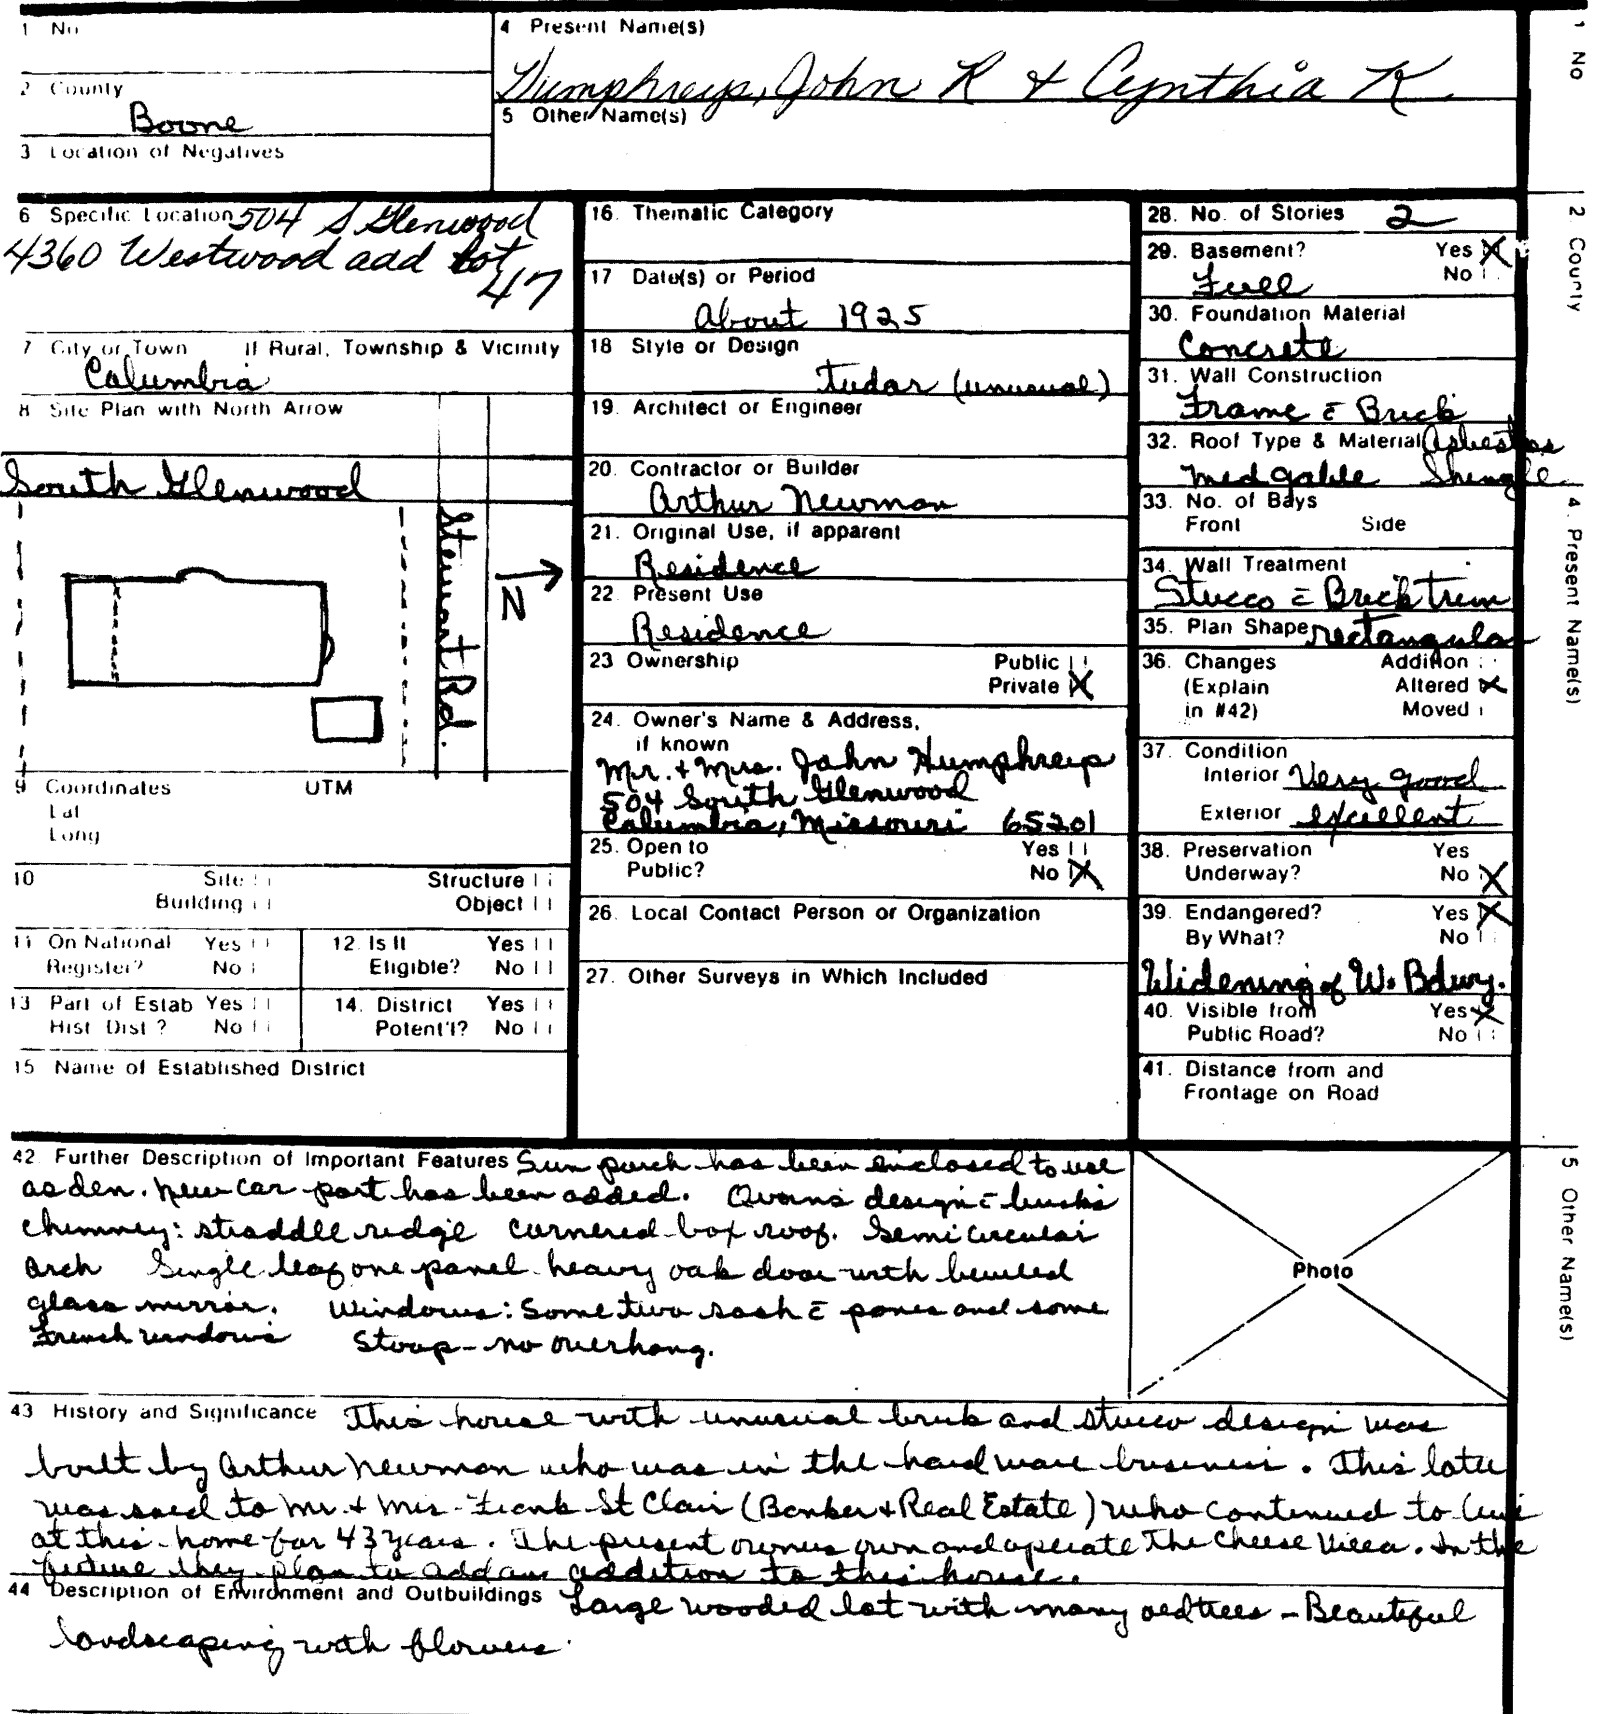 1 No.
4 Present Name(s)
Humphreys, John R & Cynthia K.
2 County
Boone
5 Other Name(s)
3 Location of Negatives
6 Specific Location 504 S Glenwood
4360 Westwood add lot
47
7 City or Town If Rural, Township & Vicinity
Columbia
8 Site Plan with North Arrow
South Glenwood
Stewart Rd.
N
9 Coordinates UTM
Lat
Long
10 Site Structure
Building Object
11 On National Register? Yes No
12. Is It Eligible? Yes No
13 Part of Estab Hist Dist? Yes No
14. District Potent'l? Yes No
15 Name of Established District
16. Thematic Category
17 Date(s) or Period
About 1925
18 Style or Design
Tudar (unusual)
19. Architect or Engineer
20. Contractor or Builder
Arthur Newman
21. Original Use, if apparent
Residence
22. Present Use
Residence
23 Ownership Public
Private X
24. Owner's Name & Address,
if known
Mr. & Mrs. John Humphreys
504 South Glenwood
Columbia, Missouri 65201
25. Open to Yes
Public? No X
26. Local Contact Person or Organization
27. Other Surveys in Which Included
28. No. of Stories 2
29. Basement? Yes X
Full No
30. Foundation Material
Concrete
31. Wall Construction
Frame c̄ Brick
32. Roof Type & Material Asbestos
med gable Shingle
33. No. of Bays
Front Side
34. Wall Treatment
Stucco c̄ Brick trim
35. Plan Shape rectangular
36. Changes Addition
(Explain Altered X
in #42) Moved
37. Condition
Interior Very good
Exterior excellent
38. Preservation Yes
Underway? No X
39. Endangered? Yes X
By What? No
Widening of W. Bdwy.
40. Visible from Yes X
Public Road? No
41. Distance from and
Frontage on Road
42. Further Description of Important Features Sun porch has been enclosed to use
as den. New car port has been added. design c̄
chimney: straddle ridge cornered box roof. Semi circular
arch Single leaf one panel heavy oak door with beveled
glass mirror. Windows: Some two sash c̄ panes and some
French windows Stoop - no overhang.
Photo
43 History and Significance This house with unusual brick and stucco design was
built by Arthur Newman who was in the hardware business. This later
was sold to Mr. & Mrs. Frank St Clair (Banker & Real Estate) who continued to live
at this home for 43 years. The present owners own and operate The Cheese Villa. In the
future they plan to add an addition to this house.
44 Description of Environment and Outbuildings Large wooded lot with many old trees - Beautiful
landscaping with flowers.
1 No
2 County
4. Present Name(s)
5 Other Name(s)